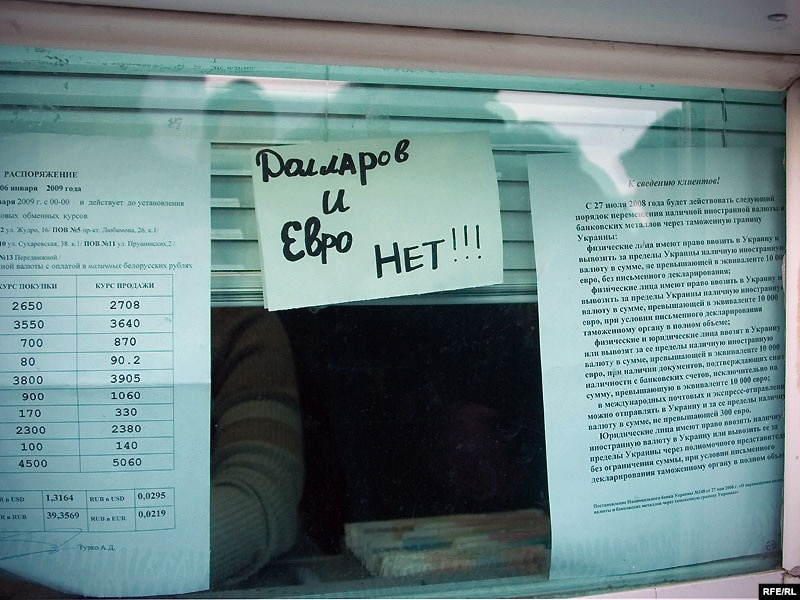 РАСПОРЯЖЕНИЕ
06 января 2009 года
варя 2009 г. с 00-00 и действует до установления
овых обменных курсов
2 ул. Жудро, 16/ ПОВ №5 пр-кт. Любимова, 26, к.1/
10 ул. Сухаревская, 38. к.1/ ПОВ №11 ул. Прушинских,2/
№13 Передвижной./
ной валюты с оплатой в наличных белорусских рублях
КУРС ПОКУПКИ КУРС ПРОДАЖИ
2650 2708
3550 3640
700 870
80 90.2
3800 3905
900 1060
170 330
2300 2380
100 140
4500 5060
R в USD 1,3164 RUB в USD 0,0295
R в RUB 39,3569 RUB в EUR 0,0219
Турко А.Д.
Долларов
и
Евро
НЕТ!!!
К сведению клиентов!
С 27 июля 2008 года будет действовать следующий
порядок перемещения наличной иностранной валюты и
банковских металлов через таможенную границу
Украины:
физические лица имеют право ввозить в Украину и
вывозить за пределы Украины наличную иностранную
валюту в сумме, не превышающей в эквиваленте 10 000
евро, без письменного декларирования;
физические лица имеют право ввозить в Украину и
вывозить за пределы Украины наличную иностранную
валюту в сумме, превышающей в эквиваленте 10 000
евро, при условии письменного декларирования
таможенному органу в полном объеме;
физические и юридические лица ввозят в Украину
или вывозят за ее пределы наличную иностранную
валюту в сумме, превышающей в эквиваленте 10 000
евро, при наличии документов, подтверждающих снятие
наличности с банковских счетов, исключительно на
сумму, превышающую в эквиваленте 10 000 евро;
в международных почтовых и экспресс-отправлениях
можно отправлять в Украину и за ее пределы наличную
валюту в сумме, не превышающей 300 евро.
Юридические лица имеют право ввозить наличную
иностранную валюту в Украину или вывозить ее за
пределы Украины через полномочного представителя
без ограничения суммы, при условии письменного
декларирования таможенному органу в полном объеме
Постановление Национального банка Украины №148 от 27 мая 2008 г. «О перемещении наличной
валюты и банковских металлов через таможенную границу Украины»
RFE/RL